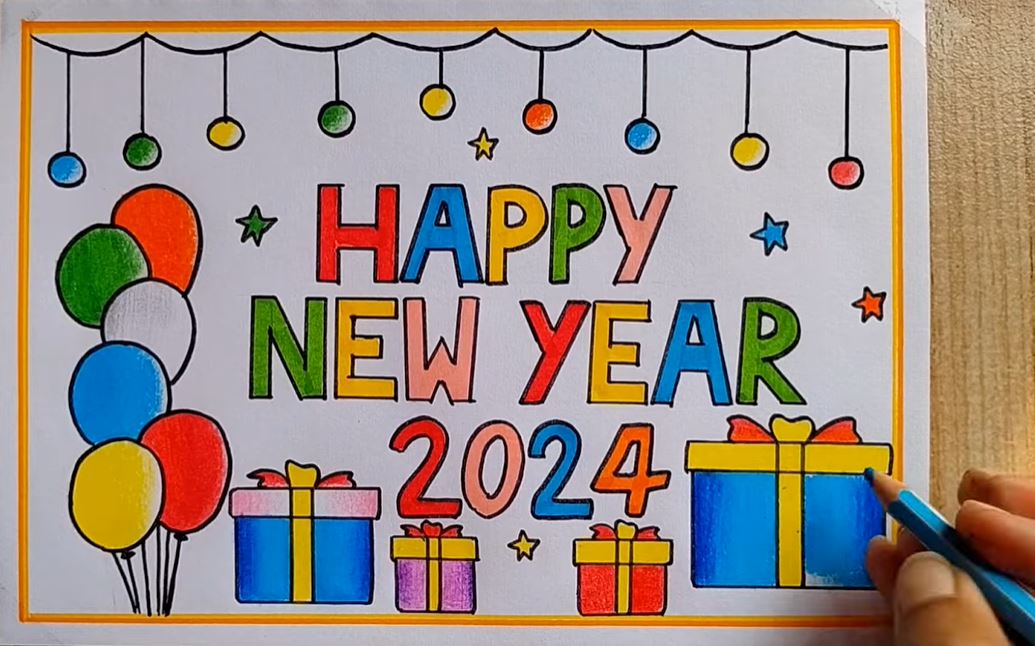 HAPPY
NEW YEAR
2024